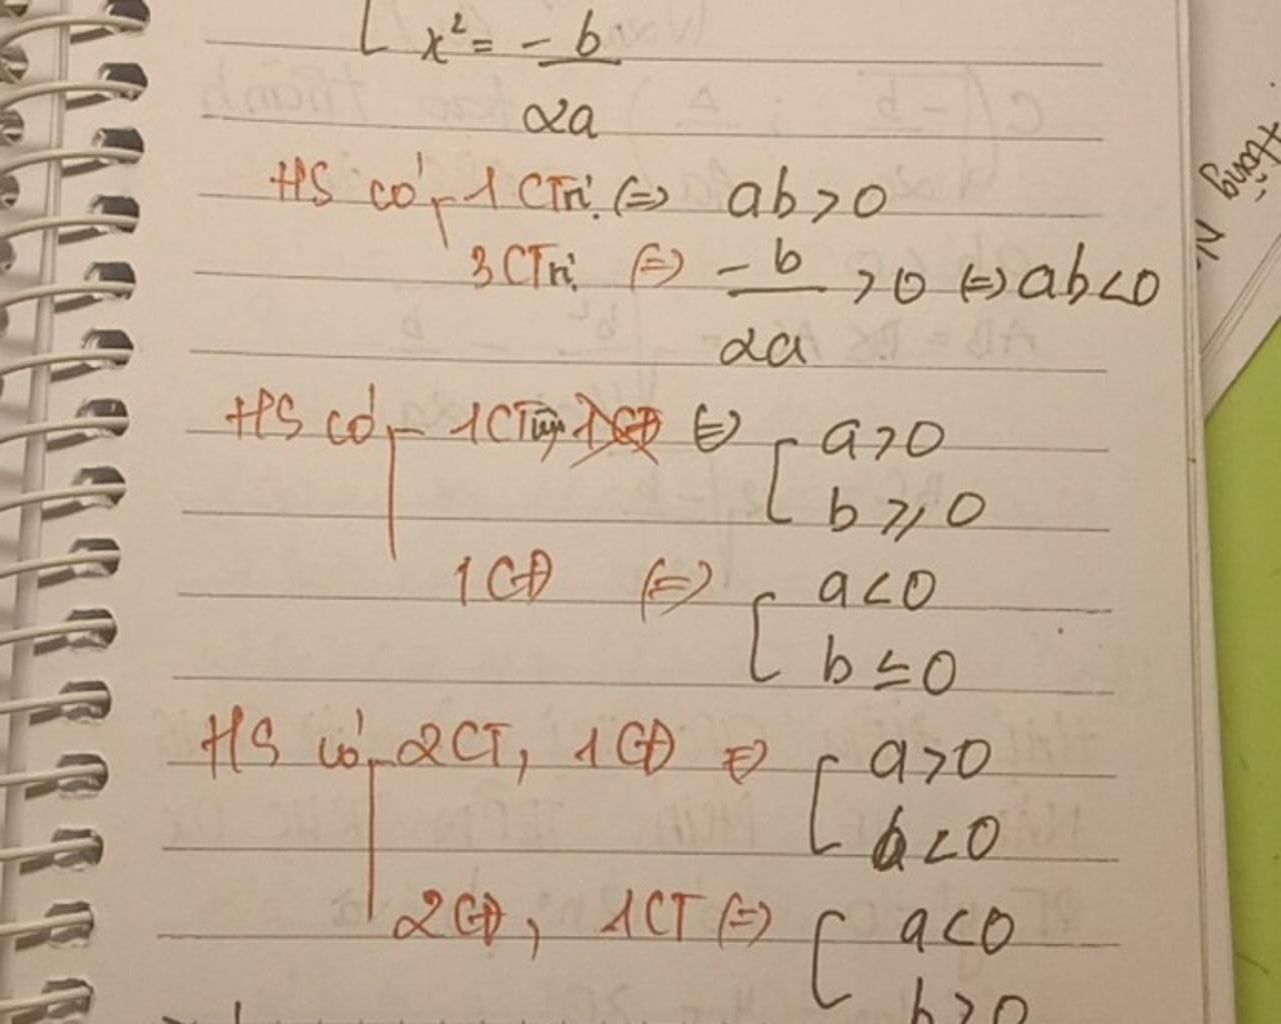 [ x² = -b
2a
HS có 1 CTrị (=) ab > 0
3 CTrị (=) -b > 0 (=) ab < 0
2a
HS có 1 CTiểu 1 CĐ (=) [ a > 0
b ≥ 0
1 CĐ (=) [ a < 0
b ≤ 0
HS có 2CT, 1 CĐ (=) [ a > 0
b < 0
2 CĐ, 1 CT (=) [ a < 0
b > 0